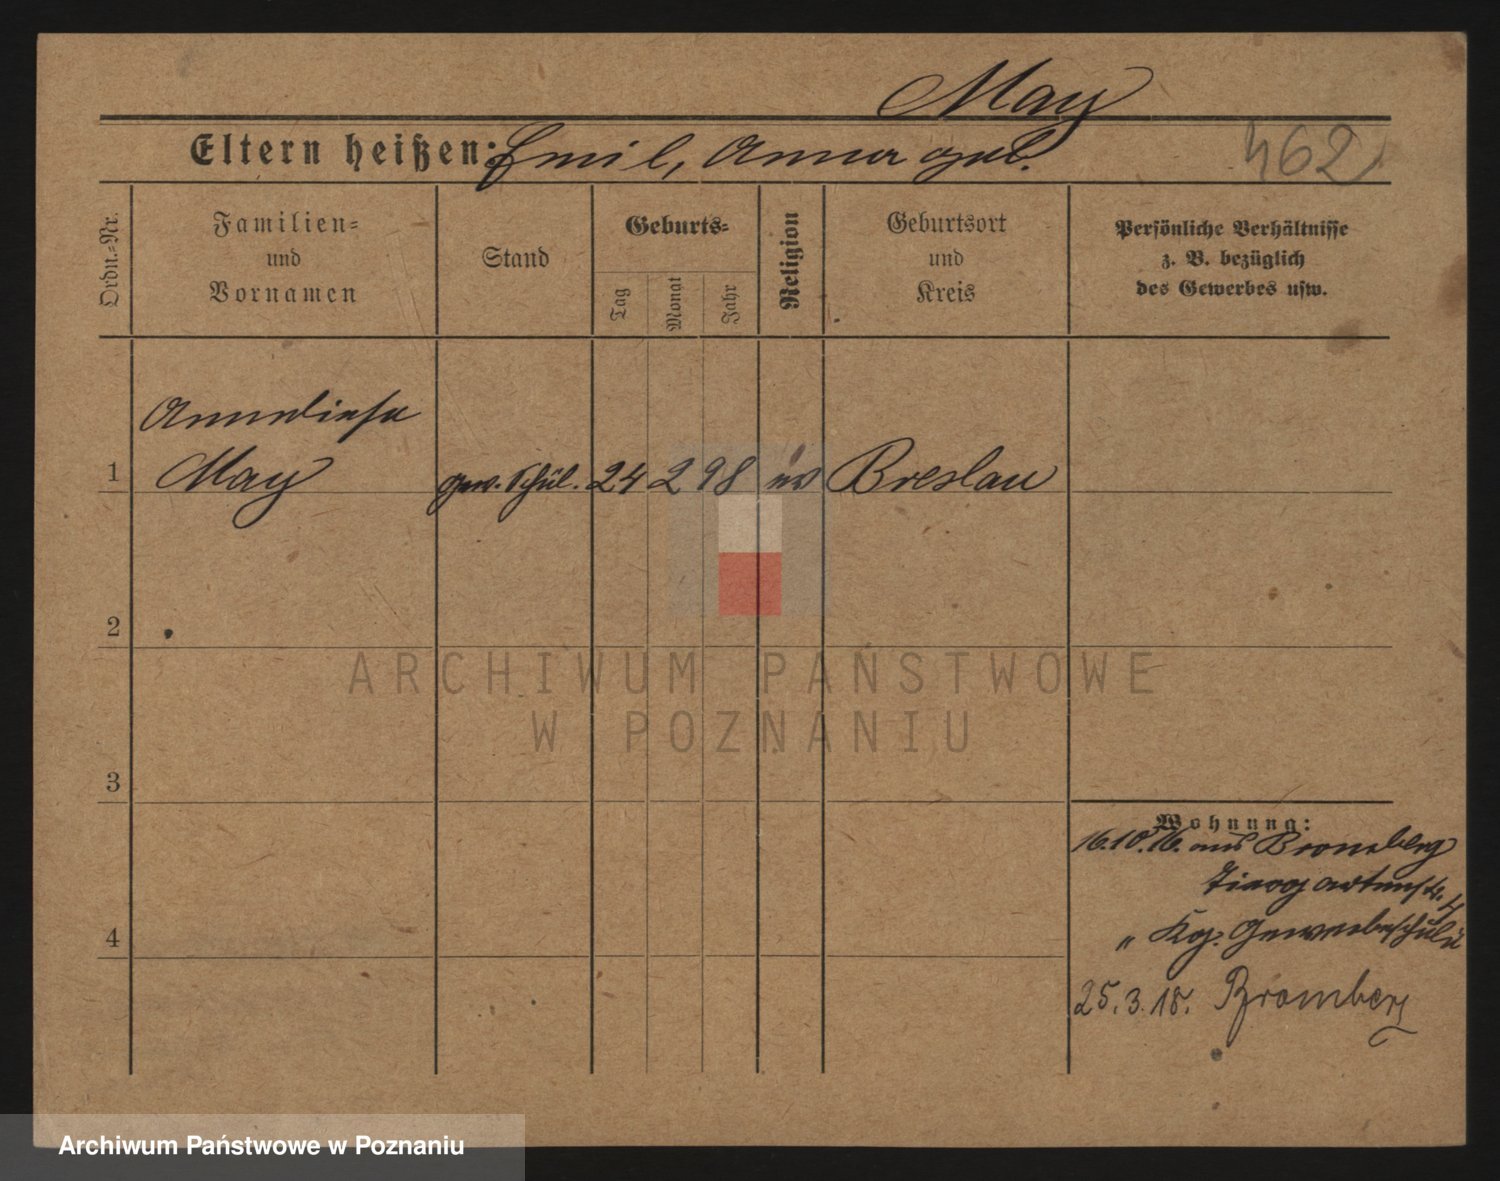 May
Eltern heißen: Emil, Anna geb.
462
Ordn.-Nr.
Familien-
und
Vornamen
Stand
Geburts-
Tag
Monat
Jahr
Religion
Geburtsort
und
Kreis
Persönliche Verhältnisse
z. B. bezüglich
des Gewerbes usw.
Anneliese
1 May gew. Schül. 24 2 98 ev Breslau
2
3
4
Wohnung:
16.10.16. aus Bromberg
" Kg. Gewerbeschule
25.3.18. Bromberg
ARCHIWUM PAŃSTWOWE
W POZNANIU
Archiwum Państwowe w Poznaniu